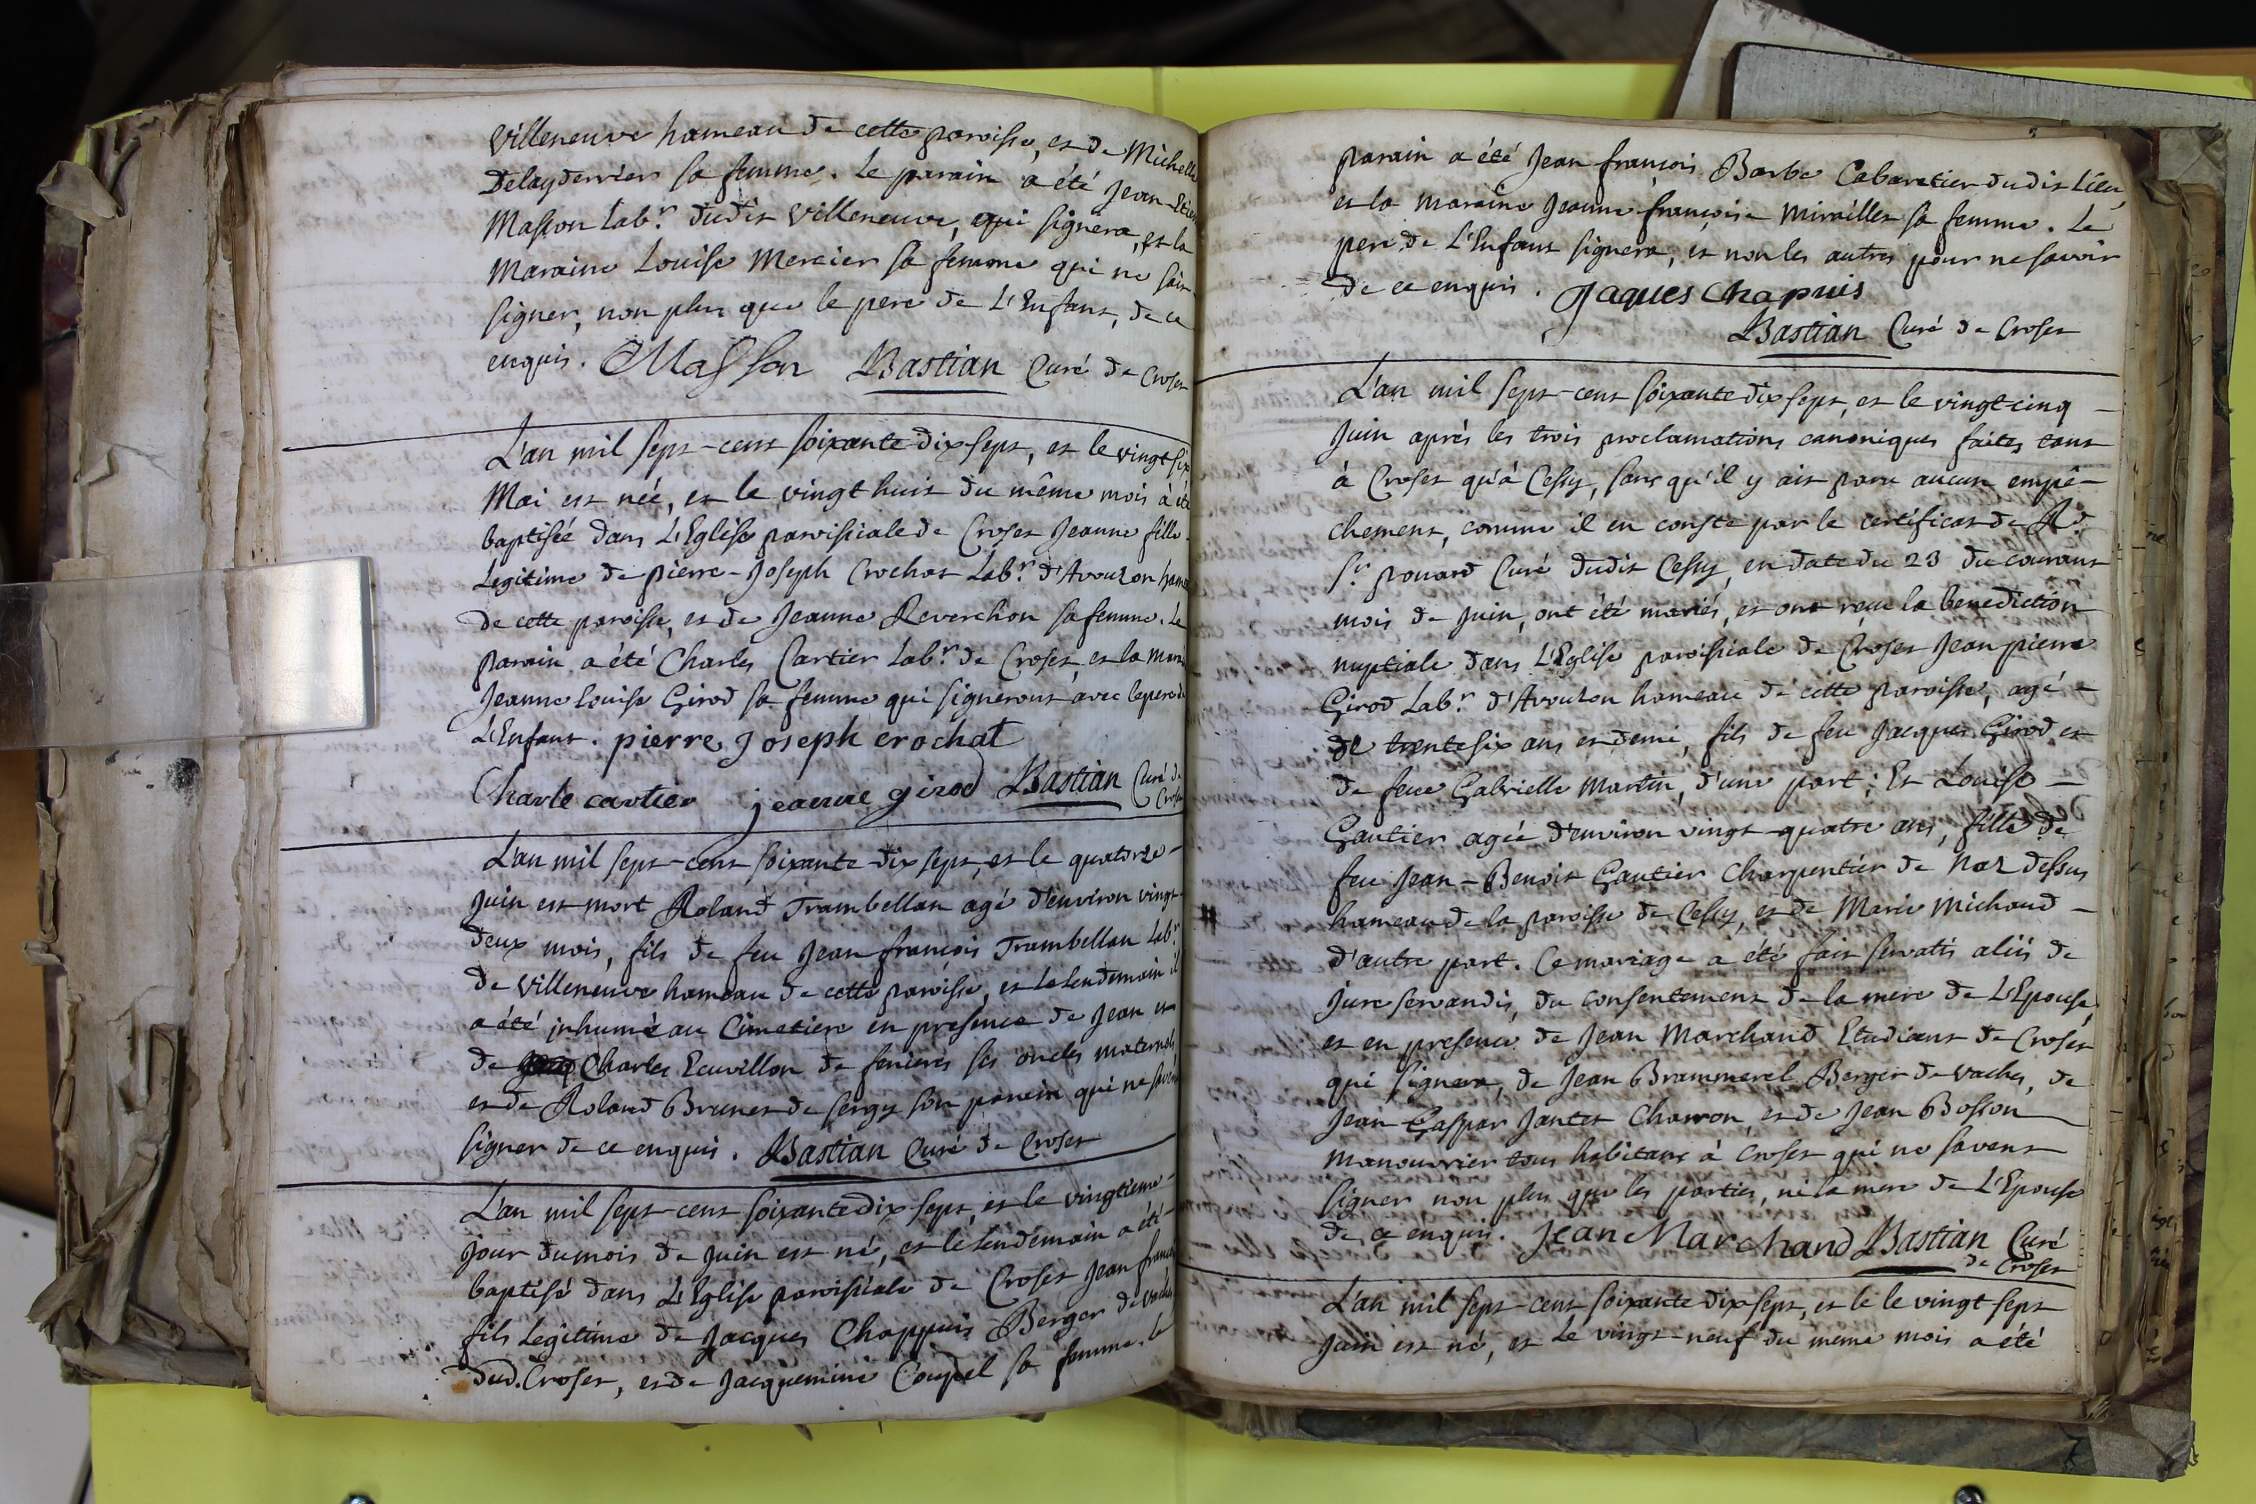 Villeneuve hameau de cette paroisse, et de Michelle
Delayderrier sa femme. Le parain a été Jean-
Masson Lab.r dudit Villeneuve, qui signera, et la
Maraine Louise Mercier sa femme qui ne sait
signer, non plus que le pere de L'Enfant, de ce
enquis. Masson Bastian Curé de Croset
L'an mil sept-cent soixante dix sept, et le vingt six
Mai est née, et le vingt huit du même mois à été
baptisée dans L'Eglise paroissiale de Croset Jeanne fille
Legitime de pierre-Joseph Crochat Lab.r d'Avouzon
de cette paroisse, et de Jeanne Reverchon sa femme. Le
parain a été Charles Cartier Lab.r de Croset, et la
Jeanne Louise Girod sa femme qui signeront avec le pere de
L'Enfant. pierre Joseph crochat
Charle cartier jeanne girod Bastian Curé de
Croset
L'an mil sept-cent soixante-dix sept, et le quatorze
Juin est mort Roland Trambellan agé d'environ vingt-
deux mois, fils de feu Jean françois Trambellan Lab.r
de Villeneuve hameau de cette paroisse, et le lendemain il
a été inhumé au Cimetiere en presence de Jean et
de Charles Ecuvillon de fenieres ses oncles maternels
et de Roland Brunet de sergy son parain qui ne savent
signer de ce enquis. Bastian Curé de Croset
L'an mil sept-cent soixante dix sept, et le vingtieme
jour du mois de Juin est né, et le lendemain a été
baptisé dans L'Eglise paroissiale de Croset Jean
fils Legitime de Jacques Chappuis Berger de vaches
dud. Croset, et de Jacquemine Coupel sa femme. Le
parain a été Jean françois Barbe Cabaretier dudit Lieu,
et la maraine Jeanne françoise Mirailler sa femme. Le
pere de L'Enfant signera, et non les autres pour ne savoir
de ce enquis. Jaques Chapuis
Bastian Curé de Croset
L'an mil sept-cent soixante dix sept, et le vingt cinq
Juin aprés les trois proclamations canoniques faites tant
à Croset qu'à Cessy, sans qu'il y ait paru aucun empê-
chement, comme il en conste par le certificat de Rd.
S.r ponard Curé dudit Cessy, en date du 23 du courant
mois de Juin, ont été mariés, et ont reçu la benediction
nuptiale dans L'Eglise paroissiale de Croset Jean pierre
Girod Lab.r d'Avouzon hameau de cette paroisse, agé
de trente six ans et demi, fils de feu Jacques Girod et
de feue Gabrielle Martin, d'une part; Et Louise
Gautier agée d'environ vingt-quatre ans, fille de
feu Jean-Benoit Gautier Charpentier de Naz dessus
hameau de la paroisse de Cessy, et de Marie Michaud
d'autre part. Ce mariage a été fait servatis aliis de
jure servandis, du consentement de la mere de L'Epouse,
et en presence de Jean Marchand Etudiant de Croset
qui signera, de Jean Brammerel Berger de vaches, de
Jean Gaspar Jantet Charron, et de Jean Bosson
manouvrier tous habitans à Croset qui ne savent
signer non plus que les parties, ni la mere de L'Epouse
de ce enquis. Jean Marchand Bastian Curé
de Croset
L'an mil sept-cent soixante dix sept, et le le vingt sept
Juin est né, et le vingt-neuf du meme mois a été